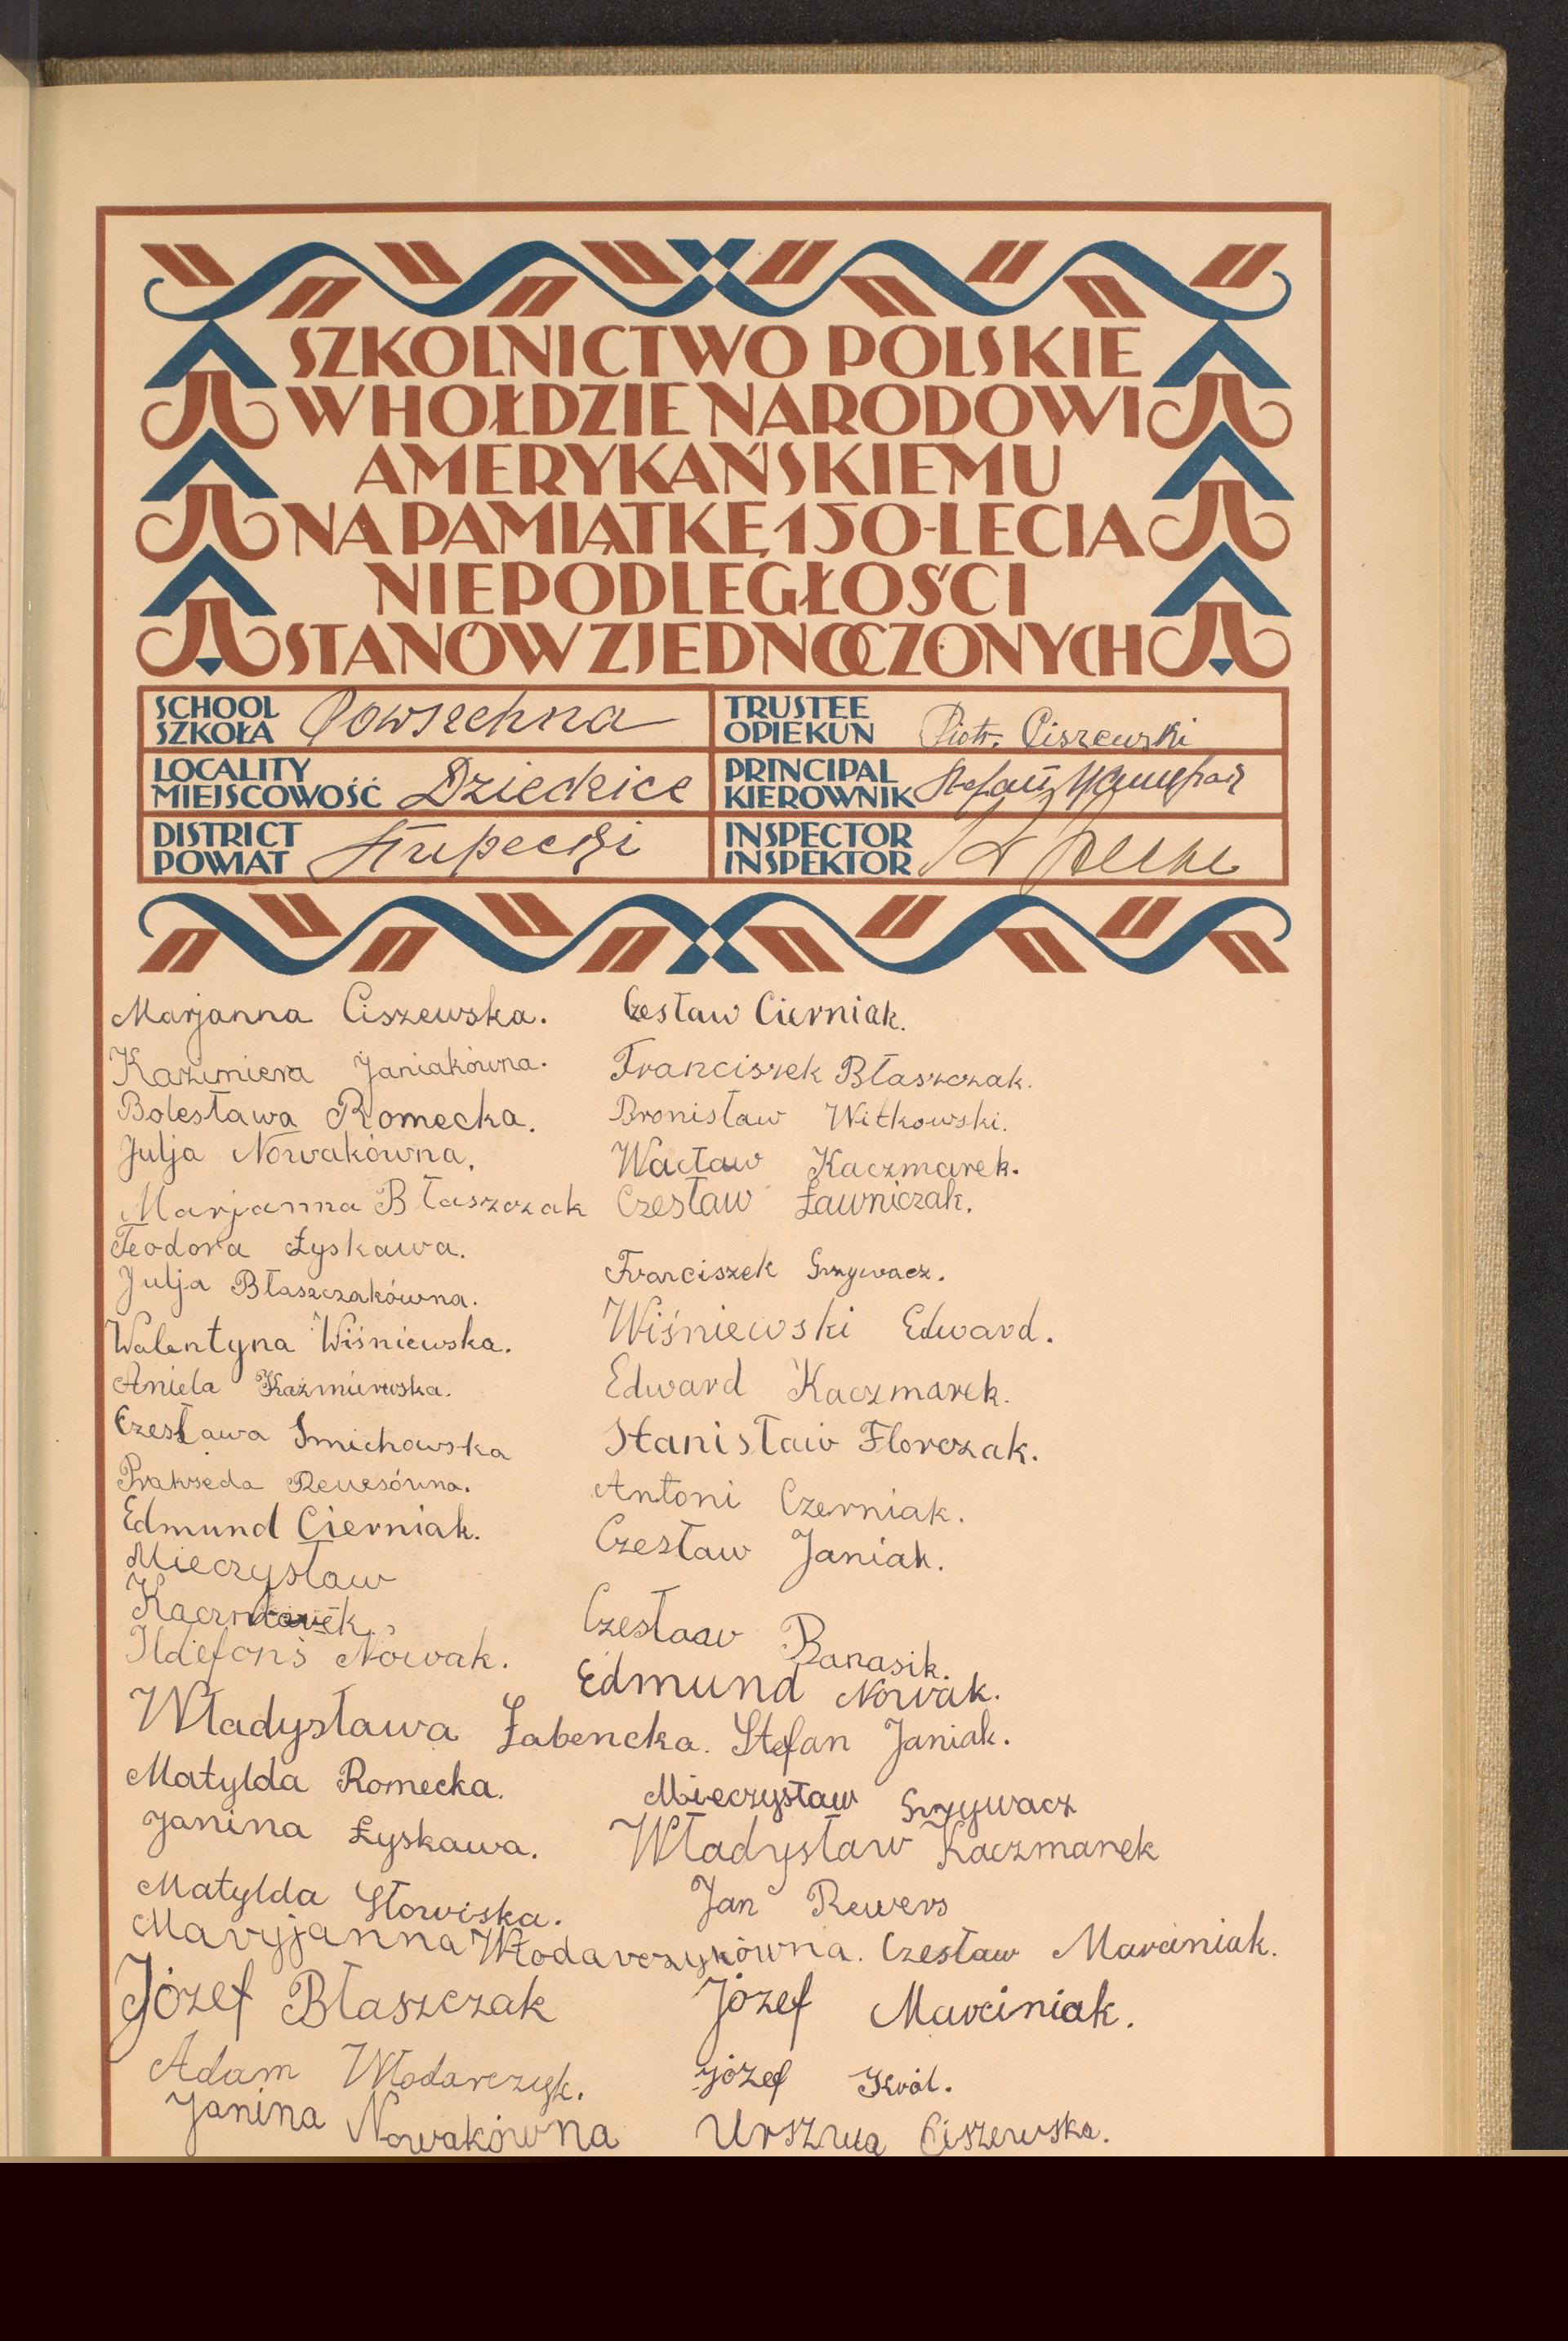 SZKOLNICTWO POLSKIE
W HOŁDZIE NARODOWI
AMERYKAŃSKIEMU
NA PAMIĄTKĘ 150-LECIA
NIEPODLEGŁOŚCI
STANÓW ZJEDNOCZONYCH
SCHOOL
SZKOŁA Powszechna
TRUSTEE
OPIEKUN Piotr Ciszewski
LOCALITY
MIEJSCOWOŚĆ Dziedzice
PRINCIPAL
KIEROWNIK Stefan
DISTRICT
POWIAT Słupecki
INSPECTOR
INSPEKTOR
Marjanna Ciszewska.
Kazimiera Janiakówna.
Bolesława Romecka.
Julja Nowakówna.
Marjanna Błaszczak
Teodora Łyskawa.
Julja Błaszczakówna.
Walentyna Wiśniewska.
Aniela Kazmierwska.
Czesława Smichowska
Prakseda Rewesówna.
Edmund Cierniak.
Mieczysław
Kaczmarek.
Ildefons Nowak.
Władysława Łabencka.
Matylda Romecka.
Janina Łyskawa.
Matylda Słowiska.
Maryjanna Włodarczykówna.
Józef Błaszczak
Adam Włodarczyk.
Janina Nowakówna
Czesław Cierniak.
Franciszek Błaszczak.
Bronisław Witkowski.
Wacław Kaczmarek.
Czesław Ławniczak.
Franciszek Grzywacz.
Wiśniewski Edward.
Edward Kaczmarek.
Stanisław Florczak.
Antoni Czerniak.
Czesław Janiak.
Czesław Banasik.
Edmund Nowak.
Stefan Janiak.
Mieczysław Grzywacz
Władysław Kaczmarek
Jan Rewers
Czesław Marciniak.
Józef Marciniak.
Józef Król.
Urszula Ciszewska.